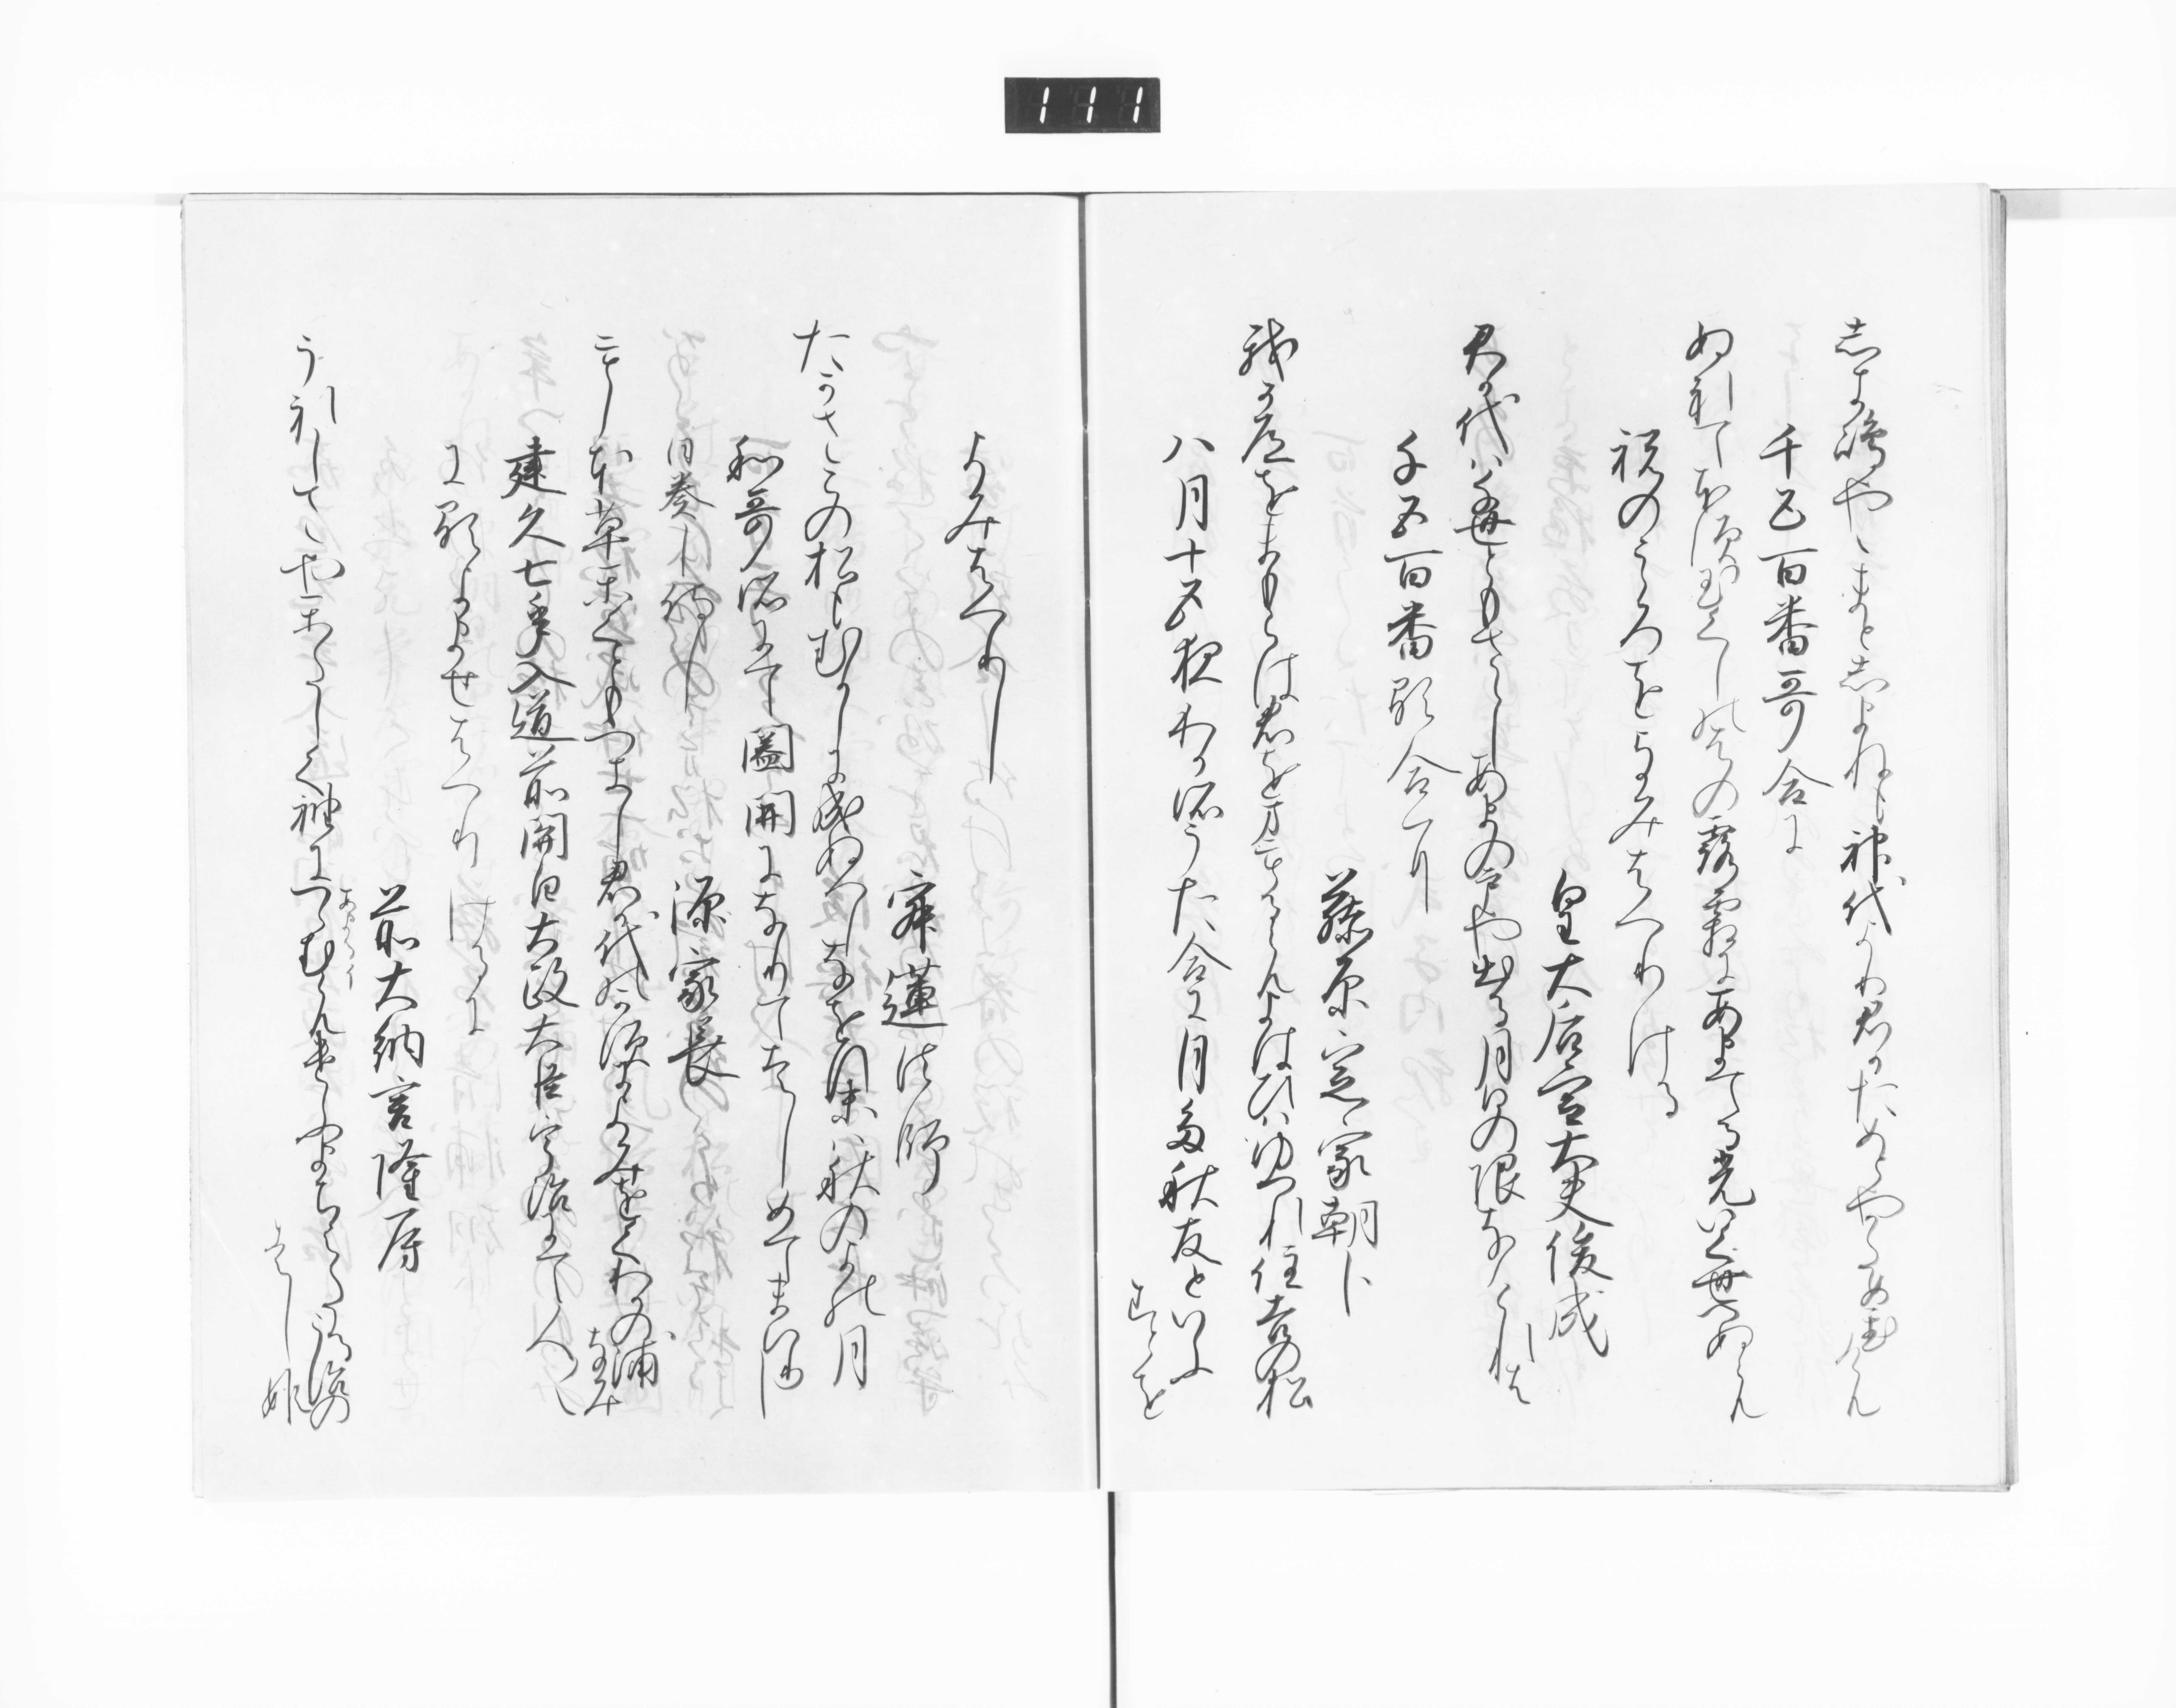 111
志き嶋やゝまと志まねも神代より君かためとやかため置けん
千五百番哥合に
ぬれてほす玉くしの葉の露霜にあまてる光いく世へぬらん
祝のこゝろをよみはへりける
皇大后宮大夫俊成
君か代は千世ともさゝしあまの戸や出る月日の限なけれは
千五百番哥合に
藤原定家朝臣
我か道をまもらは君を万らんよはひはゆつれ住吉の松
八月十五夜わか所うた合に月多秋友といふことを
よみはへりし
寂蓮法師
たかさこの松もむかしに成ぬへしなを行末は秋のよの月
和哥所にて闔開になりてはしめてまいりし
日奏し侍りし
源家長
もしほ草かくともつきし君か代の数によみをくわかの浦なみ
建久七年入道前関白太政大臣宇治にて人〱
に哥よませはへりけるに
前大納言隆房
うれしさやかたしく袖につゝむらんけふまちえたるうちの
はし姫